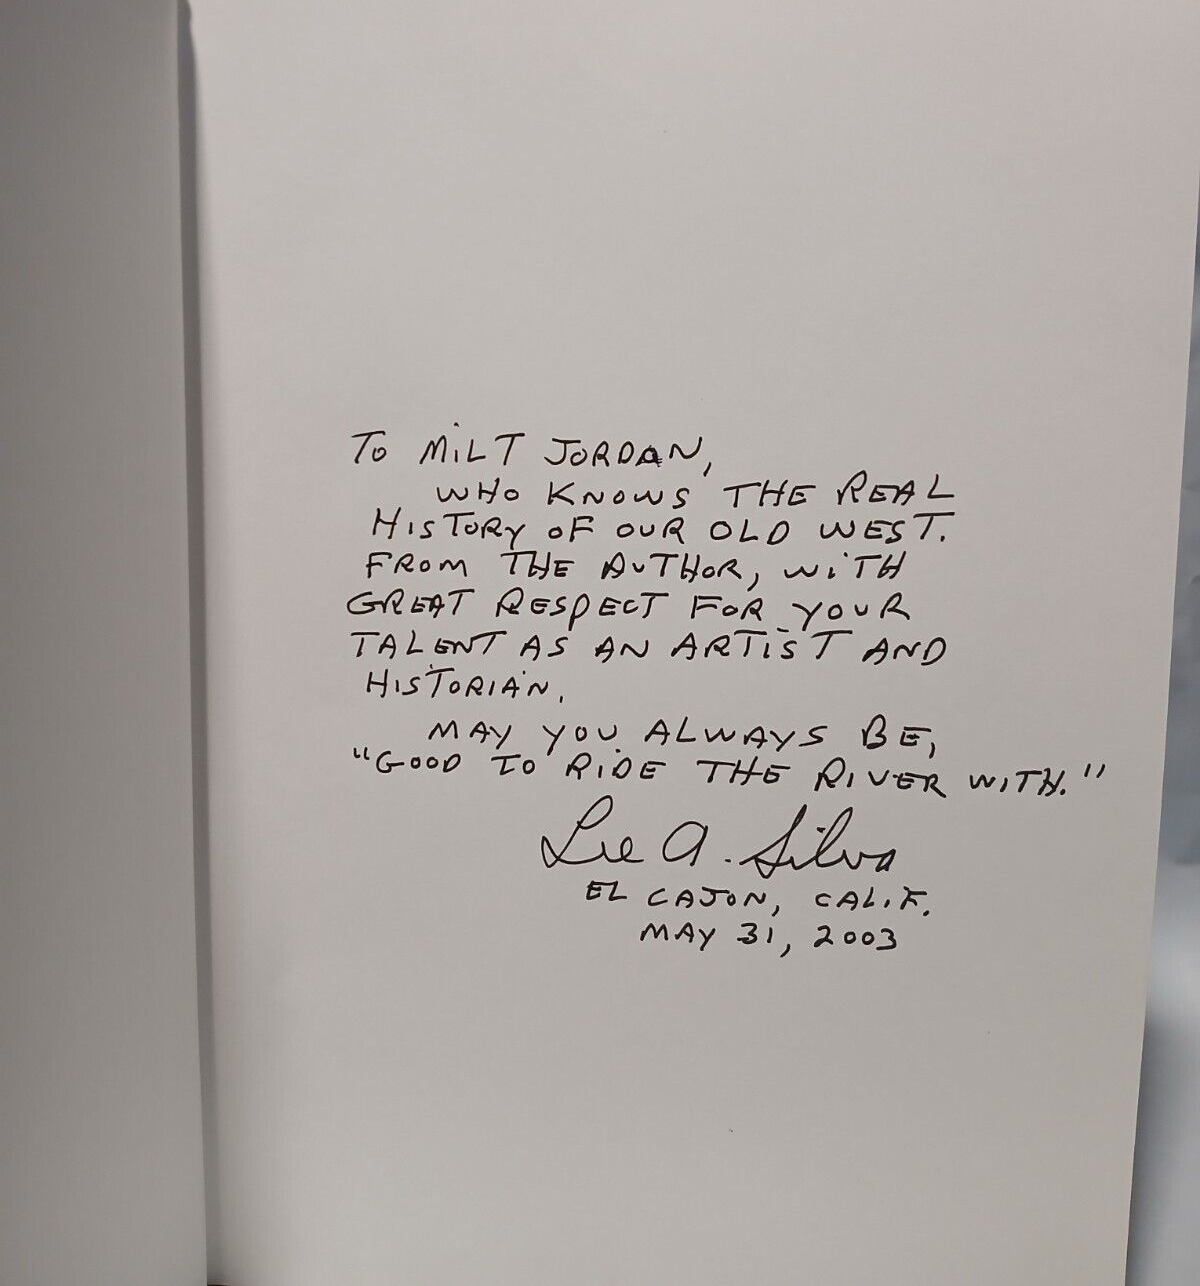 To MiLT JORDAN,
WHO KNOWS THE REAL
HISTORY OF OUR OLD WEST.
FROM THE AUTHOR, WiTH
GREAT RESPECT FOR YOUR
TALENT AS AN ARTiST AND
HISTORIAN.
MAY YOU ALWAYS BE,
"GOOD TO RIDE THE RIVER WITH."
Lee A. Silva
EL CAJON, CALIF.
MAY 31, 2003